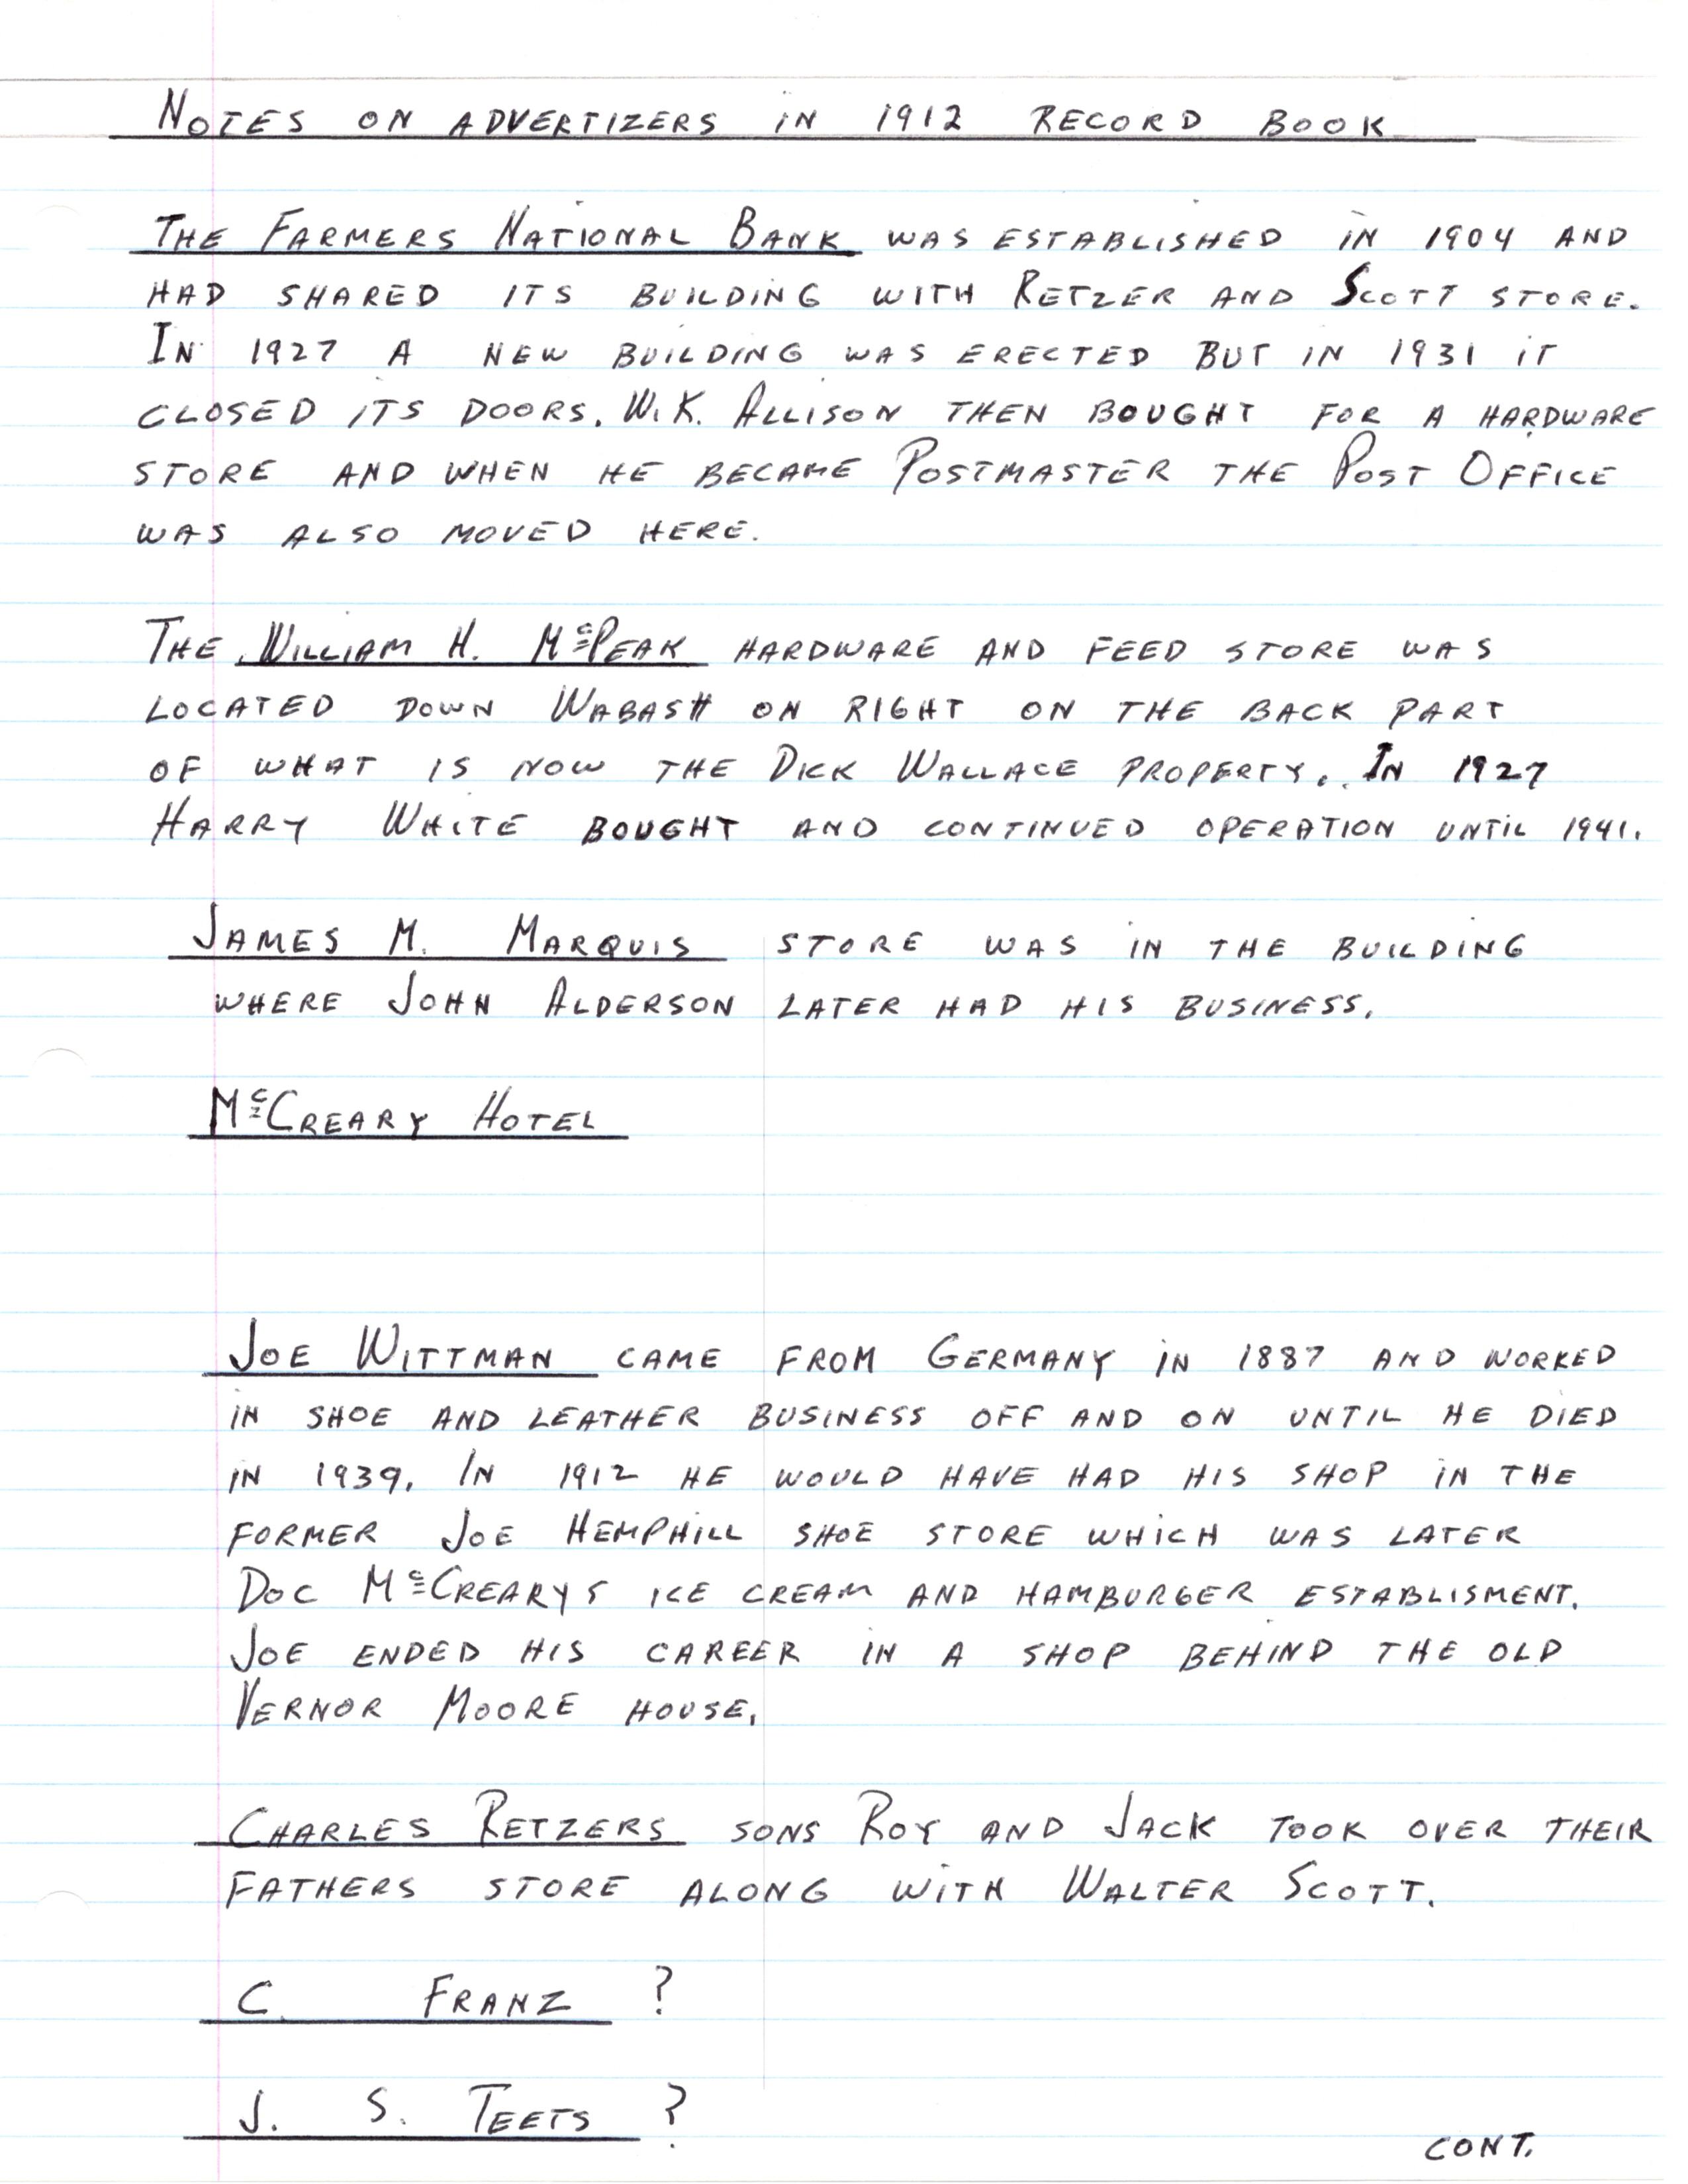 NOTES ON ADVERTIZERS IN 1912 RECORD BOOK
THE FARMERS NATIONAL BANK WAS ESTABLISHED IN 1904 AND
HAD SHARED ITS BUILDING WITH RETZER AND SCOTT STORE.
IN 1927 A NEW BUILDING WAS ERECTED BUT IN 1931 IT
CLOSED ITS DOORS. W.K. ALLISON THEN BOUGHT FOR A HARDWARE
STORE AND WHEN HE BECAME POSTMASTER THE POST OFFICE
WAS ALSO MOVED HERE.
THE WILLIAM H. McPEAK HARDWARE AND FEED STORE WAS
LOCATED DOWN WABASH ON RIGHT ON THE BACK PART
OF WHAT IS NOW THE DICK WALLACE PROPERTY. IN 1927
HARRY WHITE BOUGHT AND CONTINUED OPERATION UNTIL 1941.
JAMES M. MARQUIS STORE WAS IN THE BUILDING
WHERE JOHN ALDERSON LATER HAD HIS BUSINESS.
McCREARY HOTEL
JOE WITTMAN CAME FROM GERMANY IN 1887 AND WORKED
IN SHOE AND LEATHER BUSINESS OFF AND ON UNTIL HE DIED
IN 1939. IN 1912 HE WOULD HAVE HAD HIS SHOP IN THE
FORMER JOE HEMPHILL SHOE STORE WHICH WAS LATER
DOC McCREARYS ICE CREAM AND HAMBURGER ESTABLISMENT.
JOE ENDED HIS CAREER IN A SHOP BEHIND THE OLD
VERNOR MOORE HOUSE.
CHARLES RETZERS SONS ROY AND JACK TOOK OVER THEIR
FATHERS STORE ALONG WITH WALTER SCOTT.
C. FRANZ ?
J. S. TEETS ?
CONT.